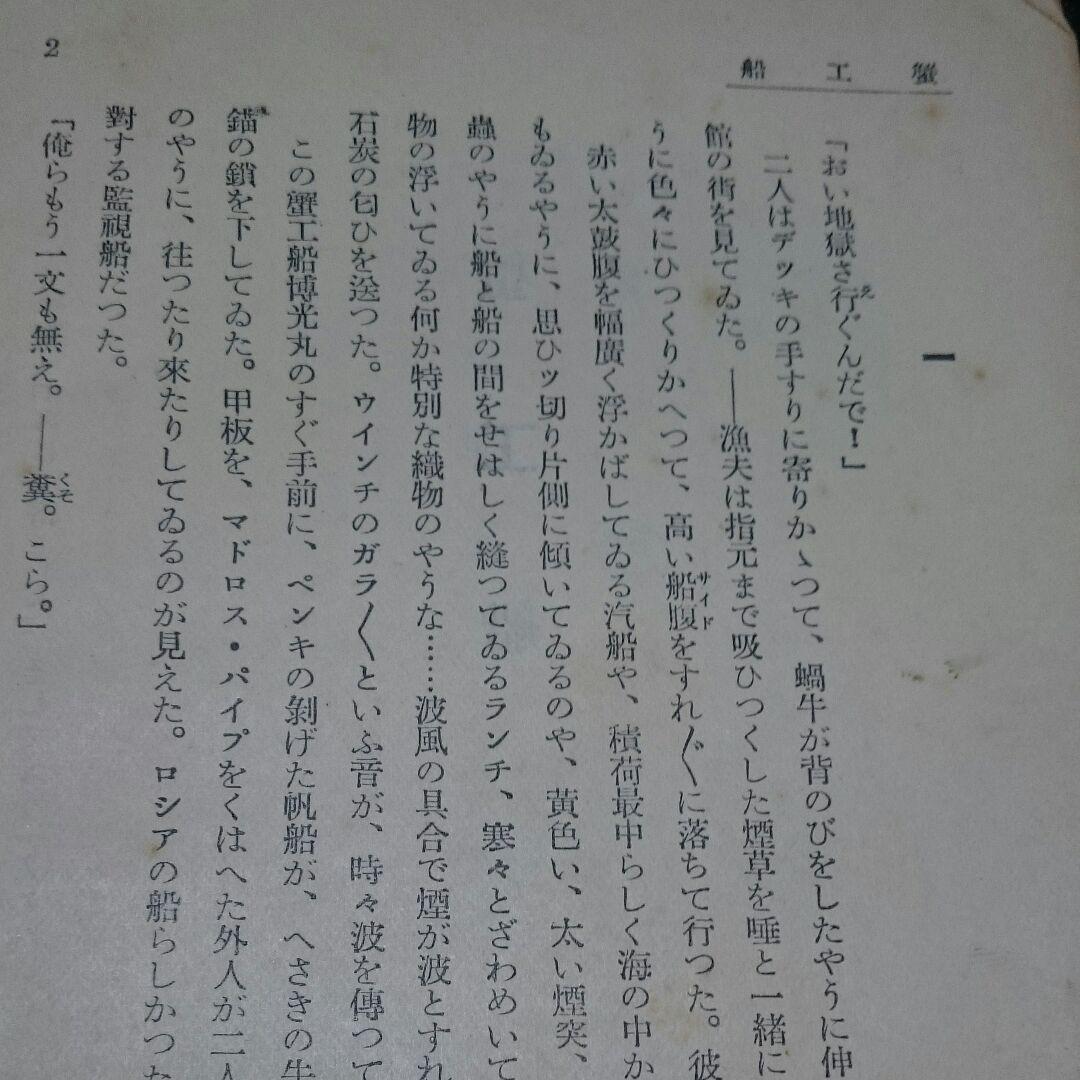 蟹工船
2
一
「おい地獄さ行(え)ぐんだで！」
二人はデッキの手すりに寄りかゝつて、蝸牛が背のびをしたやうに伸
館の街を見てゐた。――漁夫は指元まで吸ひつくした煙草を唾と一緒に
うに色々にひつくりかへつて、高い船腹(サイド)をすれ〴〵に落ちて行つた。彼
赤い太鼓腹を幅廣く浮かばしてゐる汽船や、積荷最中らしく海の中か
もゐるやうに、思ひッ切り片側に傾いてゐるのや、黄色い、太い煙突、
蟲のやうに船と船の間をせはしく縫つてゐるランチ、寒々とざわめいて
物の浮いてゐる何か特別な織物のやうな……波風の具合で煙が波とすれ
石炭の匂ひを送つた。ウインチのガラ〳〵といふ音が、時々波を傳つて
この蟹工船博光丸のすぐ手前に、ペンキの剝げた帆船が、へさきの牛
錨の鎖を下してゐた。甲板を、マドロス・パイプをくはへた外人が二人
のやうに、往つたり來たりしてゐるのが見えた。ロシアの船らしかつた
對する監視船だつた。
「俺らもう一文も無え。――糞(くそ)。こら。」